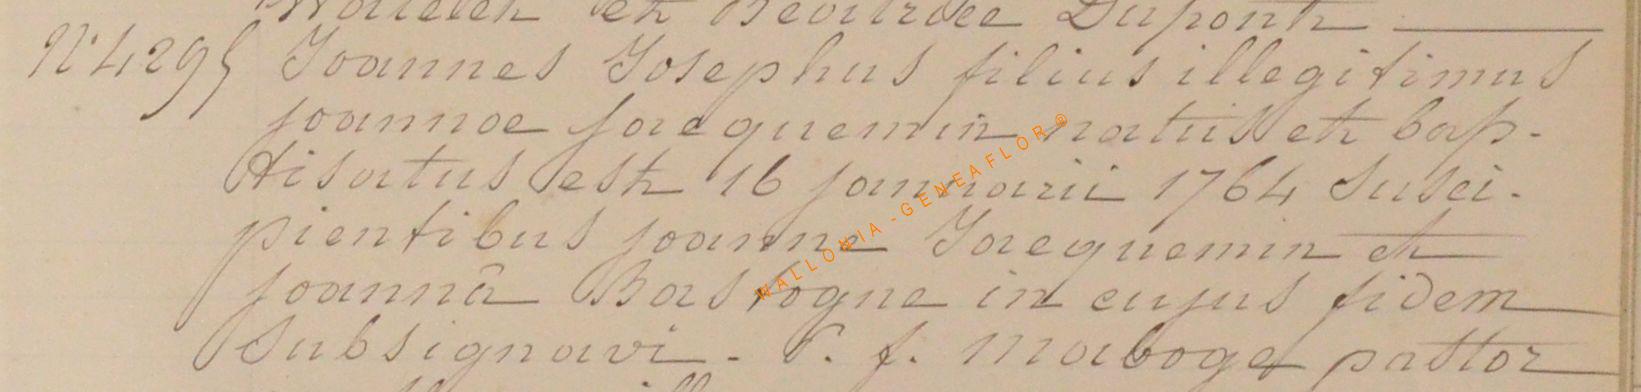 et Dupont
N° 4295 Joannes Josephus filius illegitimus
joannae jacquemin natus et bap-
tisatus est 16 januarii 1764 susci-
pientibus joanne Jacquemin et
joannâ Bastogne in cujus fidem
subsignavi - P. j. Maboge pastor
WALLONIA-GENEAFLOR®